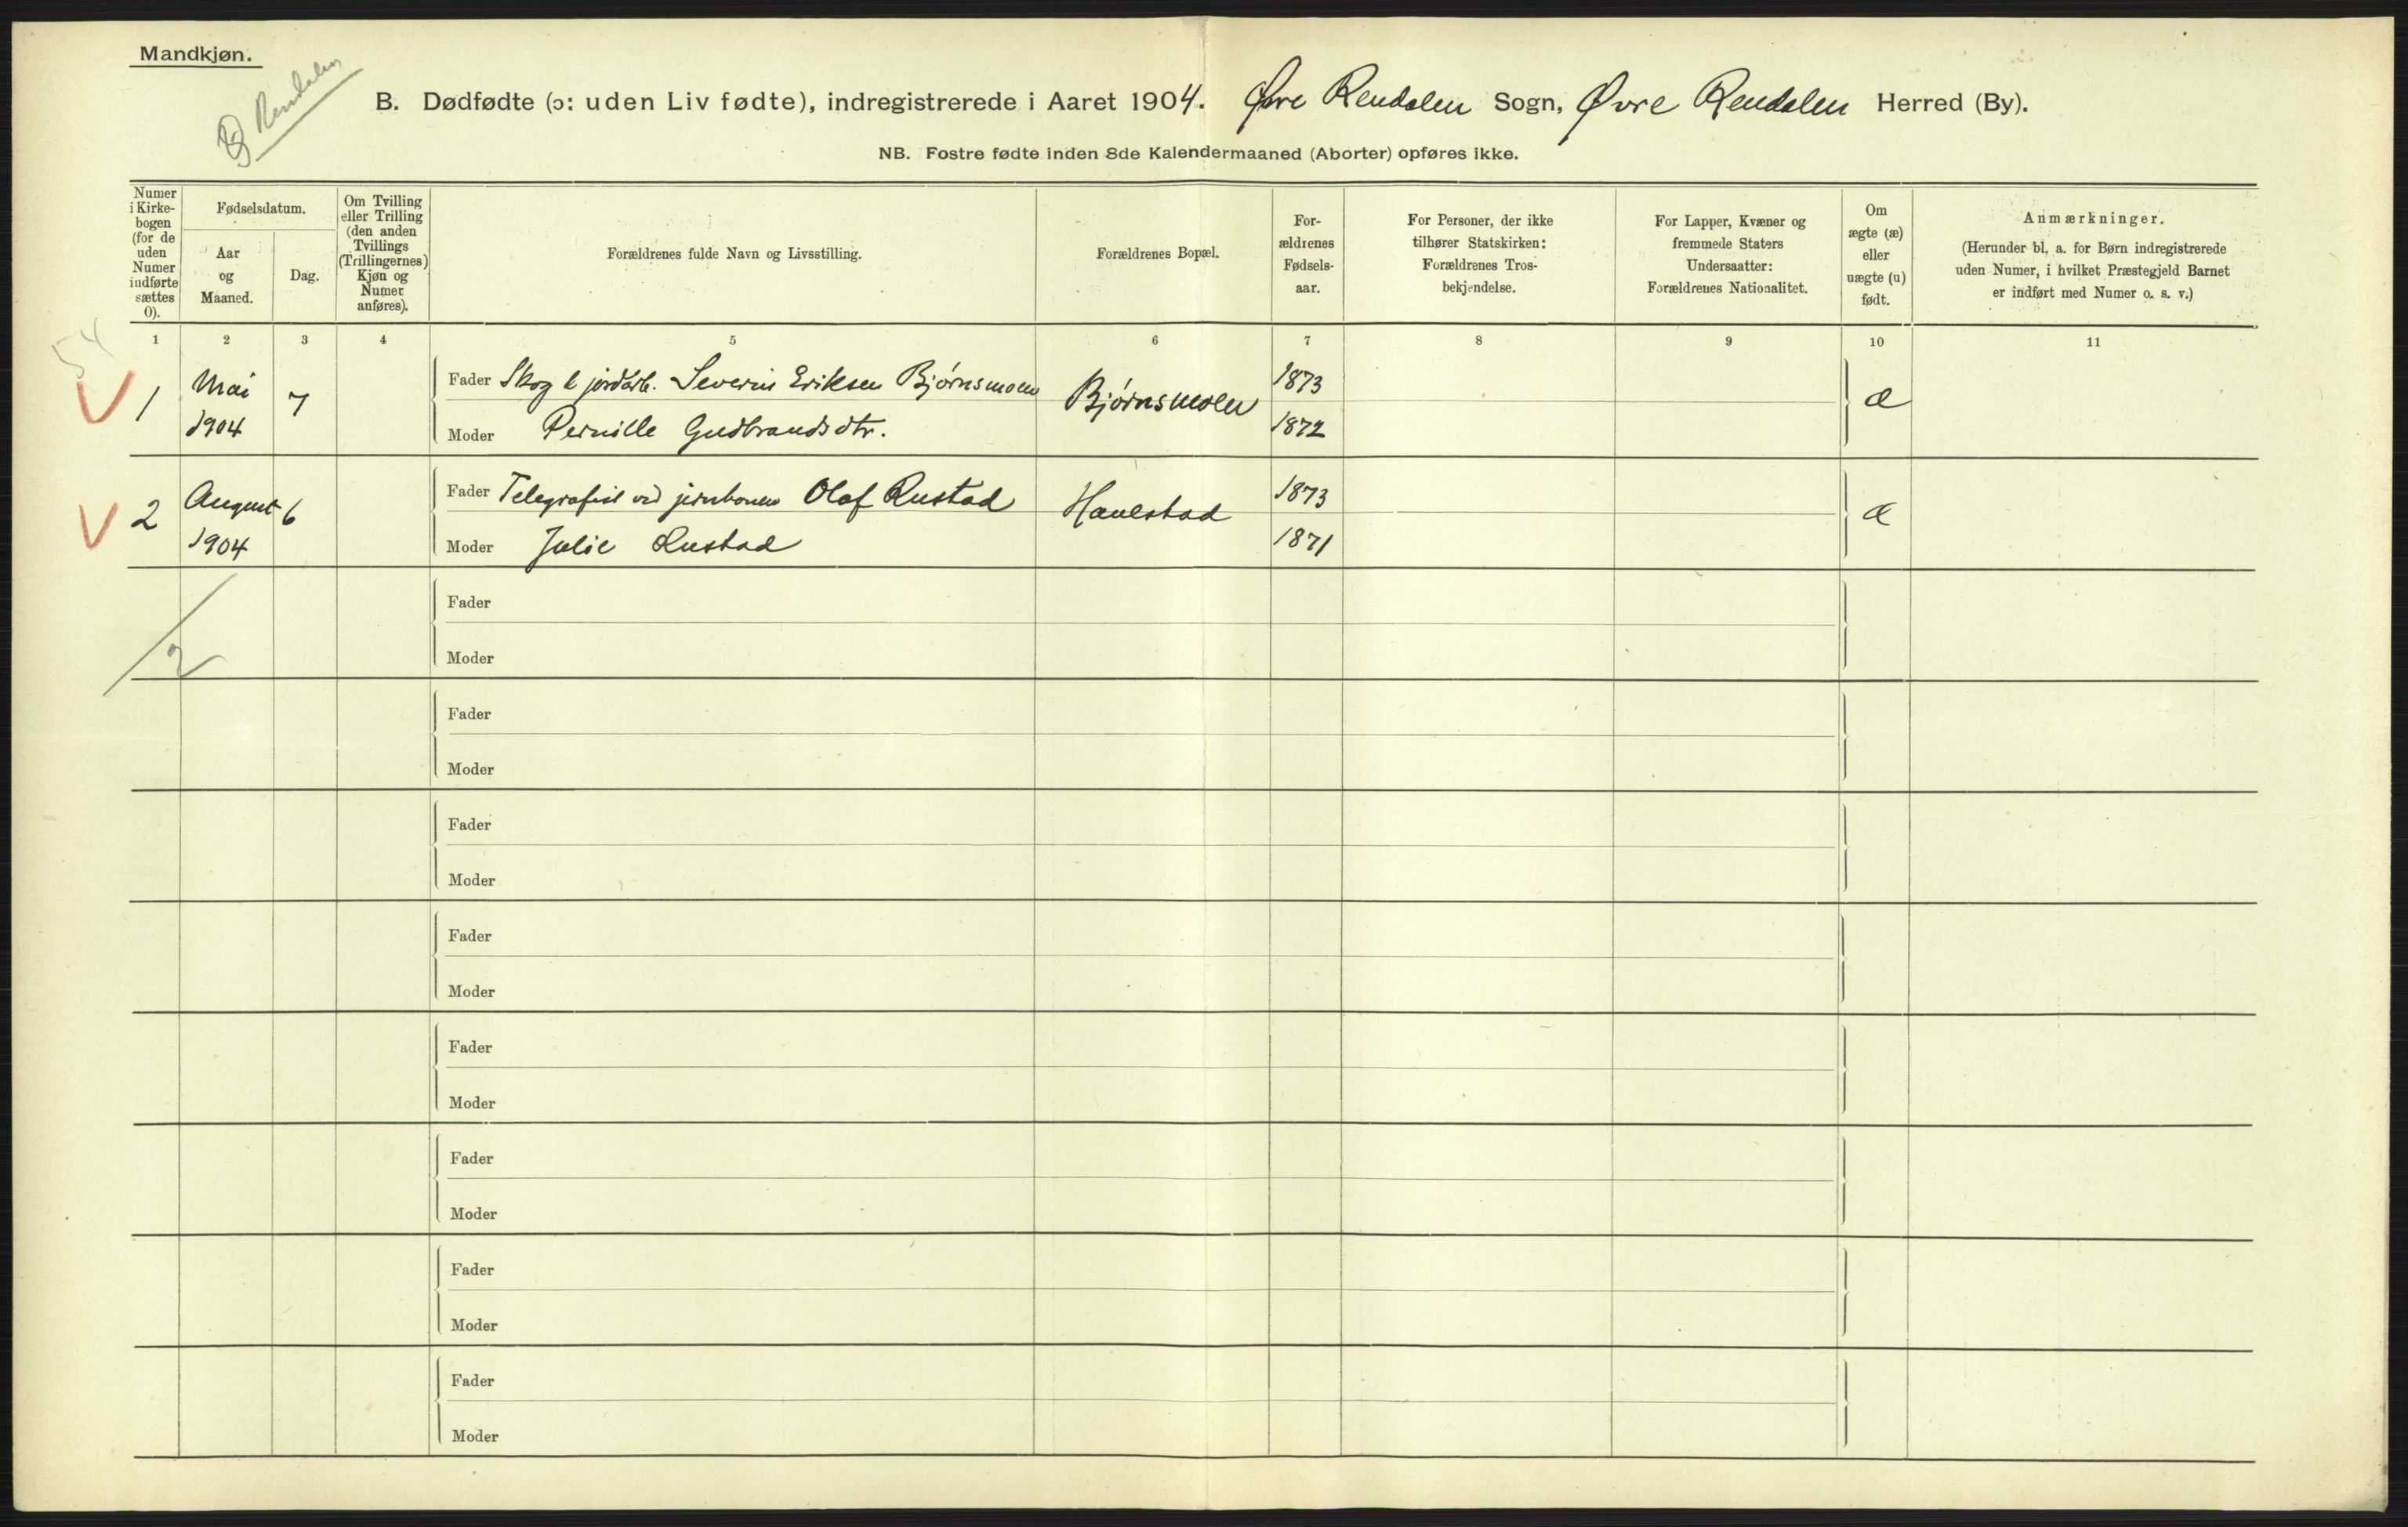 Mandkjøn.
Ø Rendalen
B. Dødfødte (ɔ: uden Liv fødte), indregistrerede i Aaret 1904. Øvre Rendalen Sogn, Øvre Rendalen Herred (By).
NB. Fostre fødte inden 8de Kalendermaaned (Aborter) opføres ikke.
Numer
i Kirke-
bogen
(for de
uden
Numer
indførte
sættes
0).
Fødselsdatum.
Aar
og
Maaned.
Dag.
Om Tvilling
eller Trilling
(den anden
Tvillings
(Trillingernes)
Kjøn og
Numer
anføres).
Forældrenes fulde Navn og Livsstilling.
Forældrenes Bopæl.
For-
ældrenes
Fødsels-
aar.
For Personer, der ikke
tilhører Statskirken:
Forældrenes Tros-
bekjendelse.
For Lapper, Kvæner og
fremmede Staters
Undersaatter:
Forældrenes Nationalitet.
Om
ægte (æ)
eller
uægte (u)
født.
Anmærkninger.
(Herunder bl. a. for Børn indregistrerede
uden Numer, i hvilket Præstegjeld Barnet
er indført med Numer o. s. v.)
1 2 3 4 5 6 7 8 9 10 11
54
1 Mai 1904 7
Fader Skog & jordarb. Severin Eriksen Bjørnsmoen Bjørnsmoen 1873 æ
Moder Pernille Gudbrandsdtr. 1872
2 August 1904 6
Fader Telegrafist ved jernbanen Olaf Rustad Hanestad 1873 æ
Moder Julie Rustad 1871
Fader
2
Moder
Fader
Moder
Fader
Moder
Fader
Moder
Fader
Moder
Fader
Moder
Fader
Moder
Fader
Moder